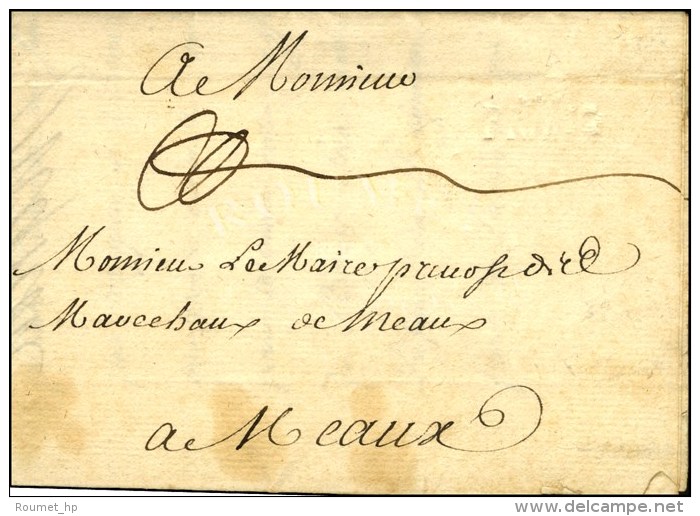 A Monsieur
Monsieur Le Maire prevost des
Marechaux de Meaux
a Meaux
Roumet_hp
delcampe.net